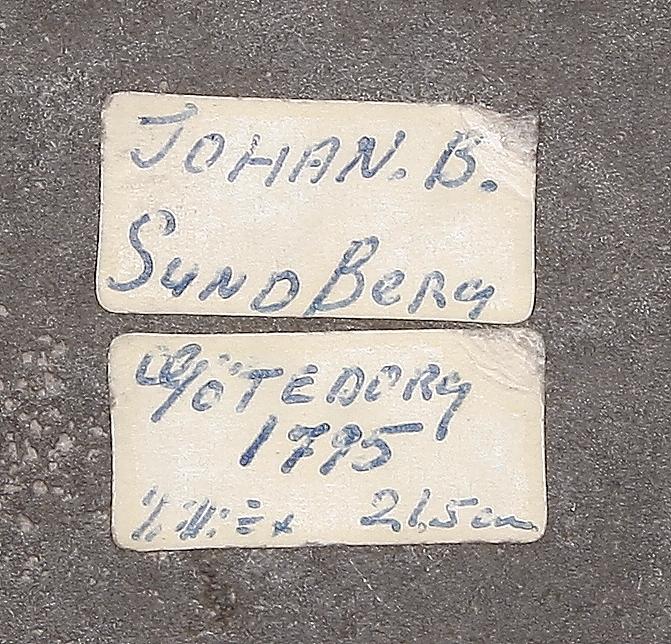 JOHAN. B.
SUNDBERG
GÖTEBORG
1795
21.5 cm